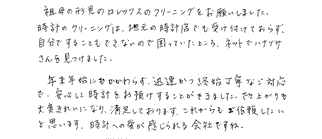 祖母の形見のロレックスのクリーニングをお願いしました。
時計のクリーニングは、地元の時計店でも受け付けておらず、
自分ですることもできないので困っていたところ、ネットでハナブサ
さんを見つけました。
年末年始にもかかわらず、迅速かつ終始丁寧なご対応
で、安心して時計をお預けすることができました。でき上がりも
大変きれいになり、満足しております。これからもご依頼したい
と思います。時計への愛が感じられる会社ですね。